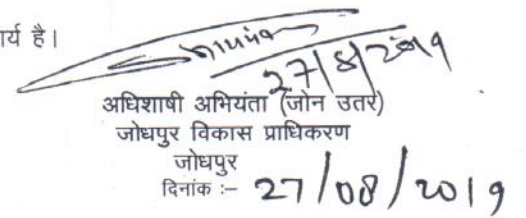 र्य है।
27/8/2019
अधिशाषी अभियंता (जोन उतर)
जोधपुर विकास प्राधिकरण
जोधपुर
दिनांक :– 27/08/2019